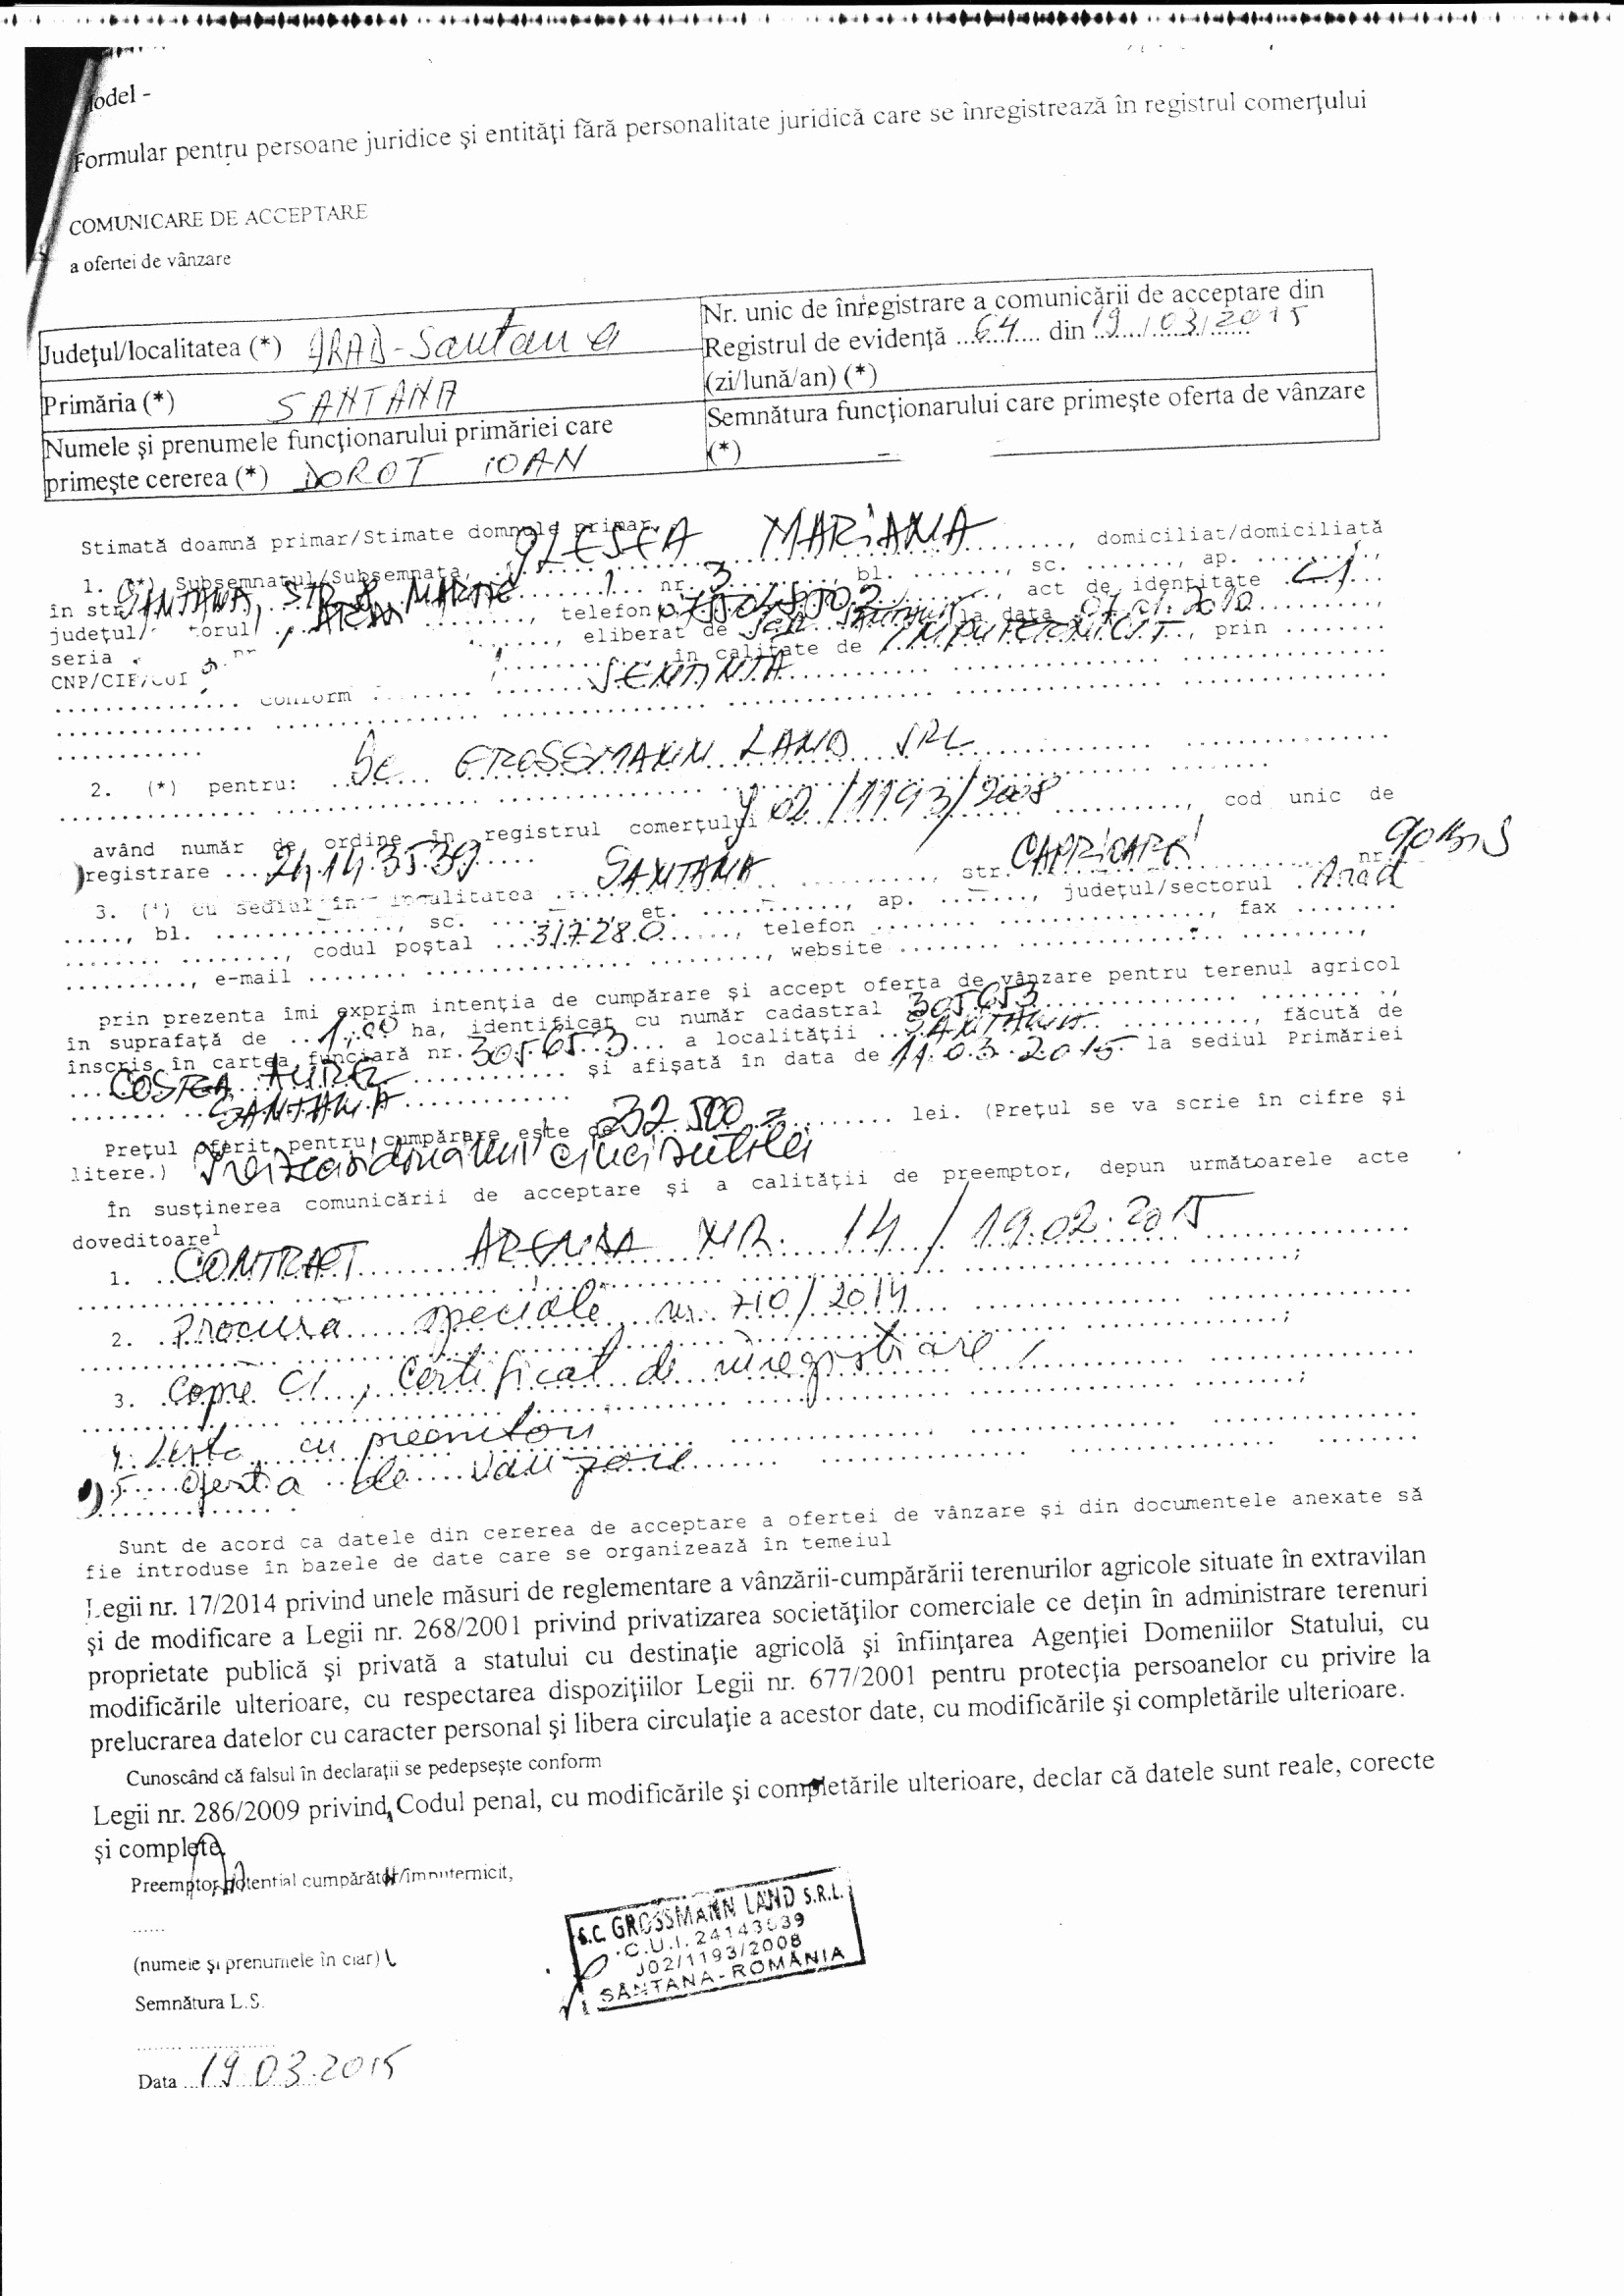 Model -
Formular pentru persoane juridice şi entităţi fără personalitate juridică care se înregistrează în registrul comerţului
COMUNICARE DE ACCEPTARE
a ofertei de vânzare
Judeţul/localitatea (*) ARAD-Santana
Nr. unic de înregistrare a comunicării de acceptare din
Registrul de evidenţă ...64.... din 19.../.03/.2015
(zi/lună/an) (*)
Primăria (*) SANTANA
Numele şi prenumele funcţionarului primăriei care
primeşte cererea (*) DOROT IOAN
Semnătura funcţionarului care primeşte oferta de vânzare
(*)
Stimată doamnă primar/Stimate domnule primar,
1. (*) Subsemnatul/Subsemnata, MARIANA ........, domiciliat/domiciliată
în str. SANTANA, STR. 8 MARTIE 1 nr. 3 ........, bl. ......., sc. ......., ap. .........,
judeţul/ torul , ARAD ........., telefon ........, act de identitate CI
seria ......., eliberat de la data 07.01.2010 ..........,
CNP/CIF/CUI în calitate de IMPUTERNICIT, prin ........
conform SENTINTA
2. (*) pentru: SC GROSSMANN LAND SRL
având număr de ordine în registrul comerţului J 02/1193/2008 .........., cod unic de
registrare ... 24143539
3. (*) cu sediul în localitatea SANTANA ..........., str. nr. 90 BIS
....., bl. ..............., sc. ........., et. ..........., ap. ......., judeţul/sectorul Arad
........ ........, codul poştal ...317280......, telefon ........ ..................., fax ........
.........., e-mail ........ .................. ........., website ........ ..................,
prin prezenta îmi exprim intenţia de cumpărare şi accept oferta de vânzare pentru terenul agricol
în suprafaţă de ...1,00 ha, identificat cu număr cadastral 305653 ........,
înscris în cartea funciară nr. 305653... a localităţii ...SANTANA.. ..........., făcută de
COSTEA AUREL ............. şi afişată în data de 11.03.2015 la sediul Primăriei
SANTANA
Preţul oferit pentru cumpărare este de 32500 .......... lei. (Preţul se va scrie în cifre şi
litere.) treizecisidouamii cincisutelei
În susţinerea comunicării de acceptare şi a calităţii de preemptor, depun următoarele acte
doveditoare1
1. CONTRACT ARENDA NR. 14 / 19.02.2015
2. Procura speciale nr. 710/2014
3. Copie CI, Certificat de inregistrare
4. Lista cu preemtori
5. Oferta de vanzare
Sunt de acord ca datele din cererea de acceptare a ofertei de vânzare şi din documentele anexate să
fie introduse în bazele de date care se organizează în temeiul
Legii nr. 17/2014 privind unele măsuri de reglementare a vânzării-cumpărării terenurilor agricole situate în extravilan
şi de modificare a Legii nr. 268/2001 privind privatizarea societăţilor comerciale ce deţin în administrare terenuri
proprietate publică şi privată a statului cu destinaţie agricolă şi înfiinţarea Agenţiei Domeniilor Statului, cu
modificările ulterioare, cu respectarea dispoziţiilor Legii nr. 677/2001 pentru protecţia persoanelor cu privire la
prelucrarea datelor cu caracter personal şi libera circulaţie a acestor date, cu modificările şi completările ulterioare.
Cunoscând că falsul în declaraţii se pedepseşte conform
Legii nr. 286/2009 privind Codul penal, cu modificările şi completările ulterioare, declar că datele sunt reale, corecte
şi complete.
Preemptor potential cumpărător/împuternicit,
......
(numele şi prenumele în clar)
Semnătura L.S.
S.C. GROSSMANN LAND S.R.L.
C.U.I. 24143539
J02/1193/2008
SÂNTANA-ROMÂNIA
Data 19.03.2015